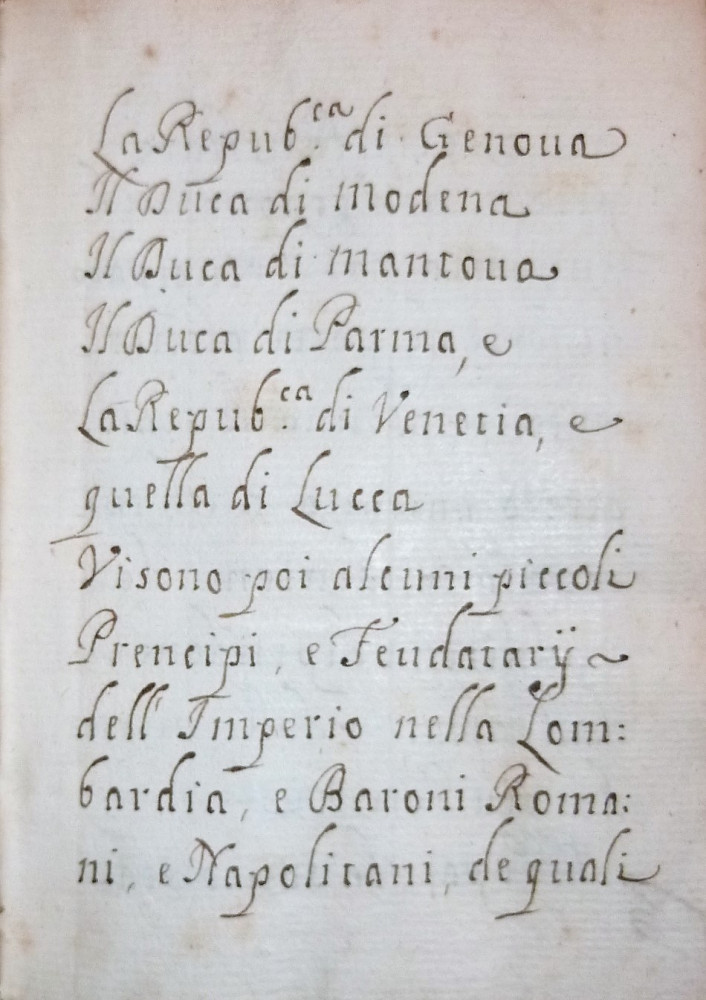 La Repub.ca di Genoua
Il Duca di Modena
Il Duca di Mantoua
Il Duca di Parma, e
La Repub.ca di Venetia, e
quella di Lucca
Vi sono poi alcuni piccoli
Prencipi, e Feudatarÿ ~
dell' Imperio nella Lom:
bardia, e Baroni Roma:
ni, e Napolitani, de quali